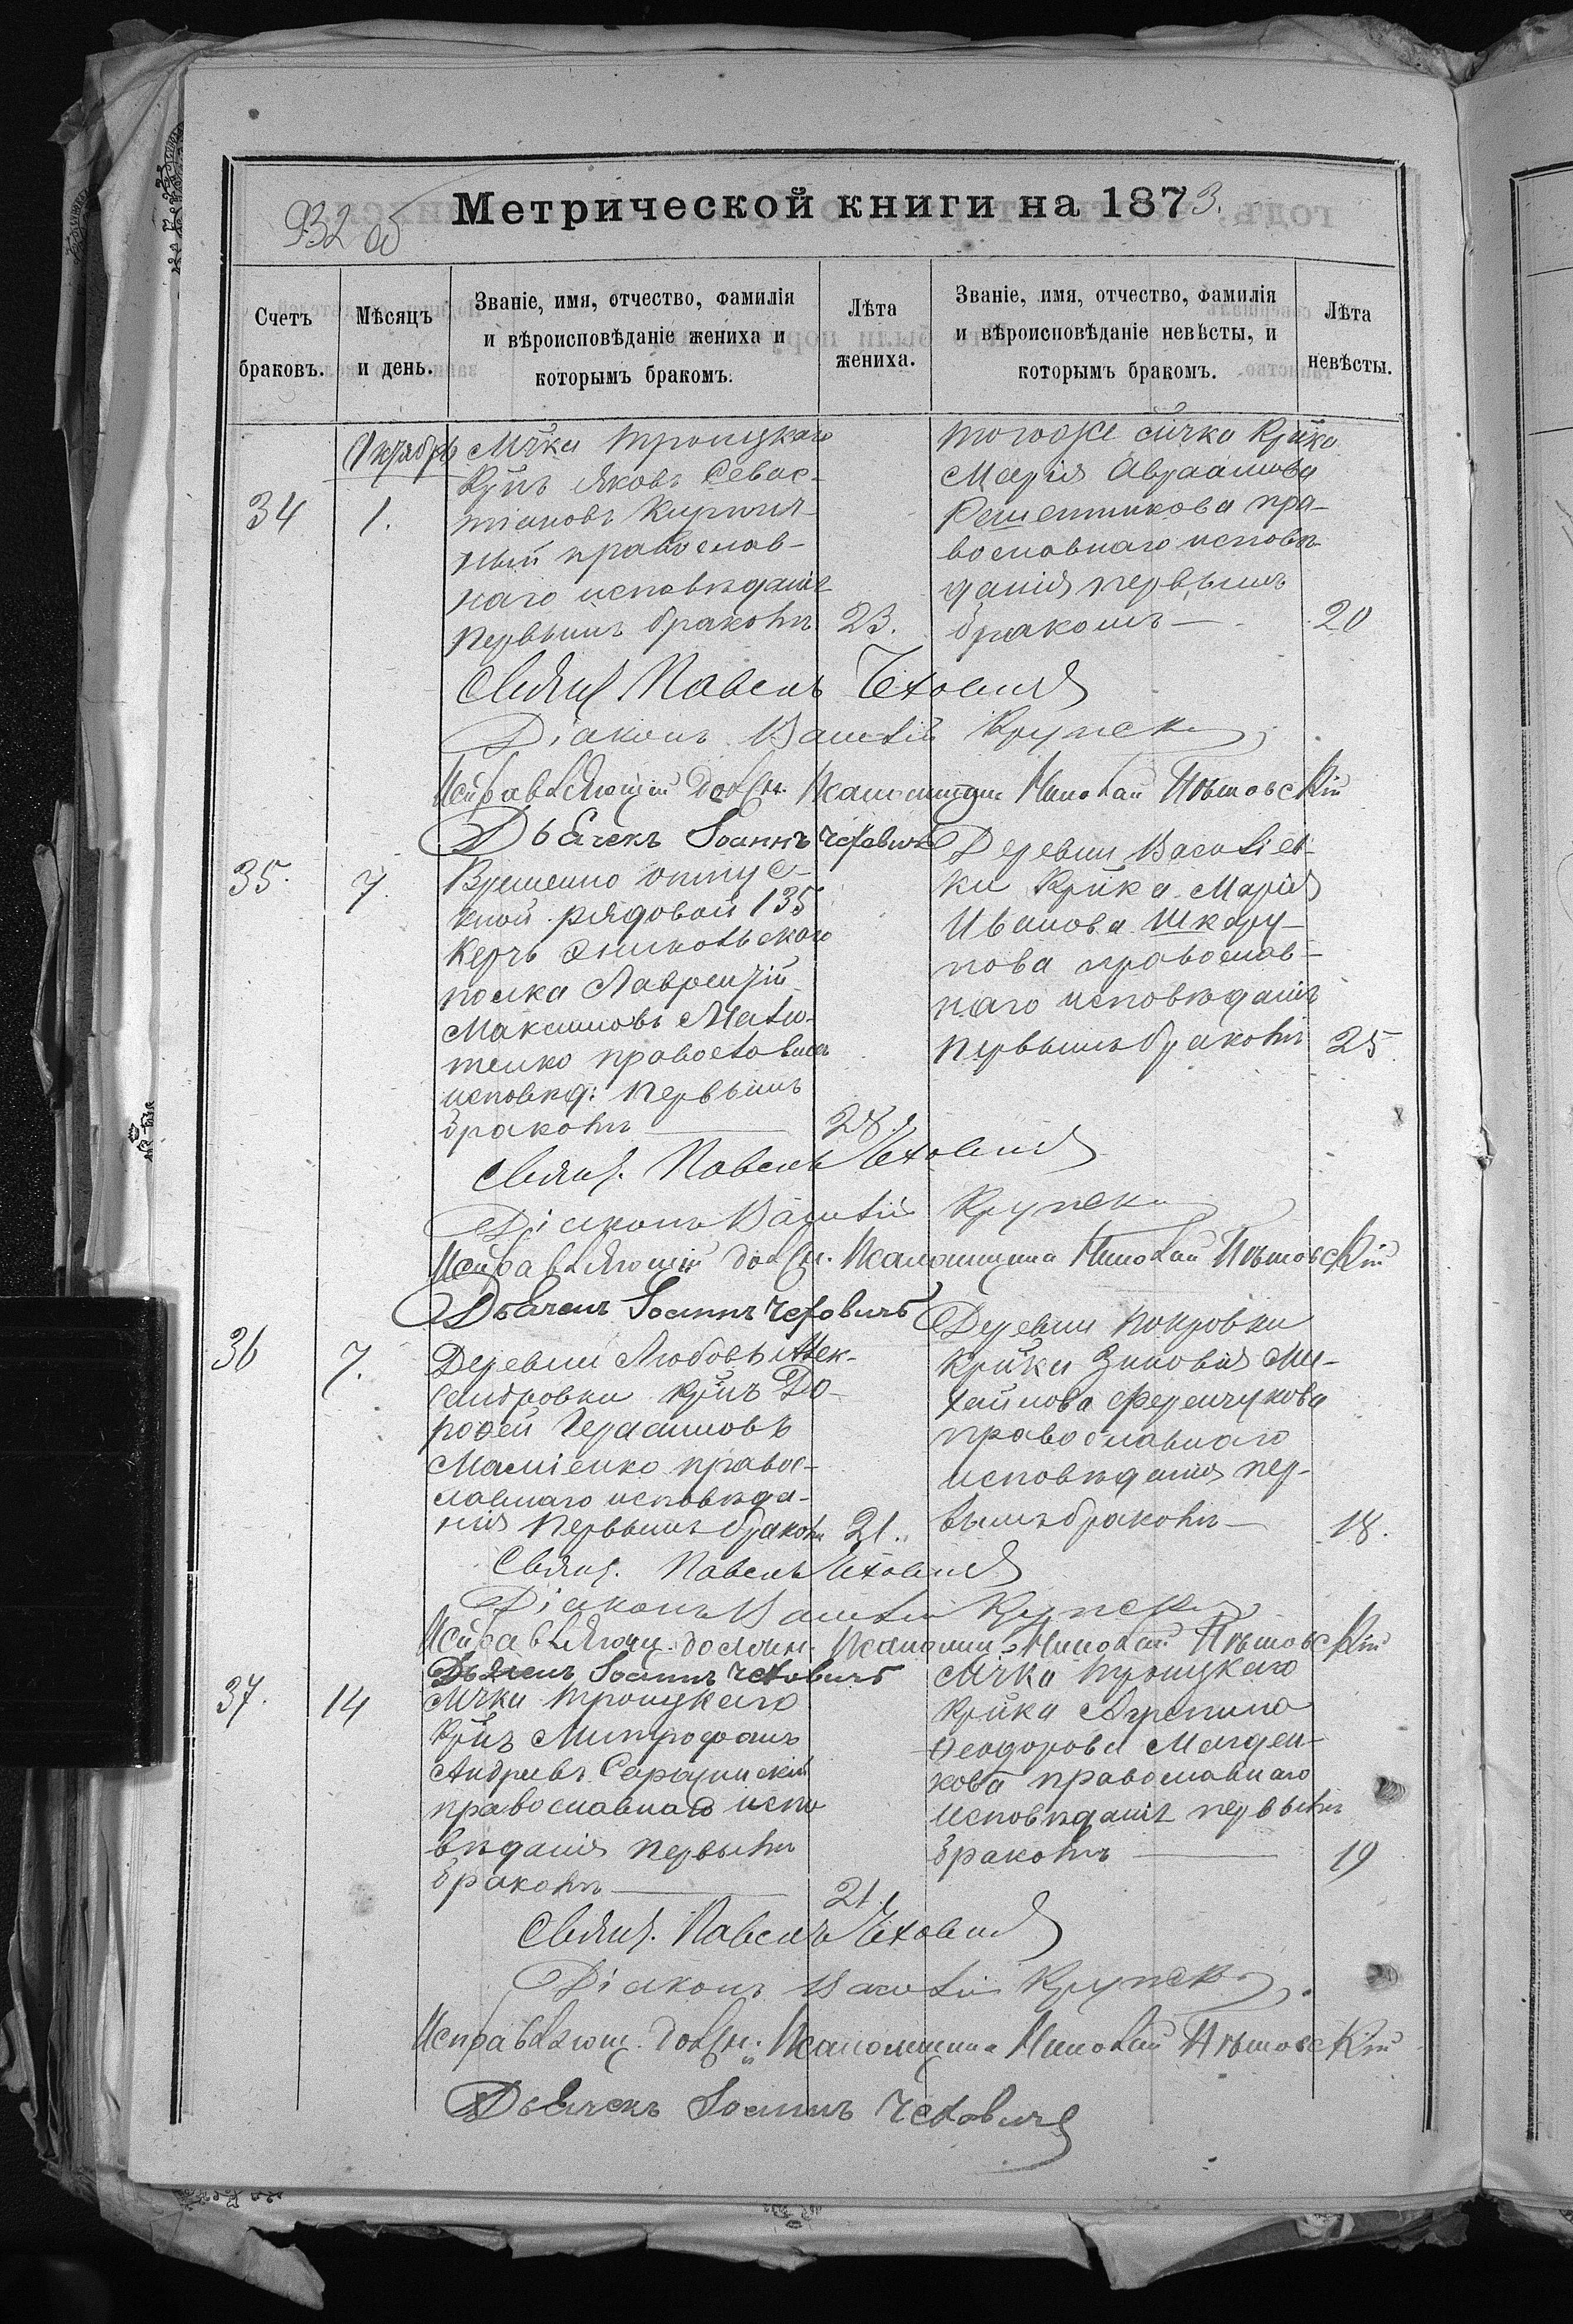 932 об
Метрической книги на 1873.
Счетъ браковъ.
Мѣсяцъ и день.
Званіе, имя, отчество, фамилія
и вѣроисповѣданіе жениха и
которымъ бракомъ.
Лѣта жениха.
Званіе, имя, отчество, фамилія
и вѣроисповѣданіе невѣсты, и
которымъ бракомъ.
Лѣта невѣсты.
Октябрь
34
1.
Мѣчка Троицкаго
Кр̃нъ Яковъ Севас-
тіановъ Кирпич-
ный православ-
наго исповѣданія
первымъ бракомъ
23.
тогоже мѣчка Кр̃ка
Марія Авраамова
Решетникова пра-
вославнаго исповѣ-
данія первымъ
бракомъ —
20
Свящ. Павелъ
Діаконъ Василій Крупск
Исправляющій должн. Псаломщика Николай
Дьячекъ Іоаннъ Чеховичъ
35.
7.
Временно отпус-
кной рядовой 135
Керчь Эникольскаго
полка Лаврентій
Максимовъ
православнаго
исповѣд: первымъ
бракомъ —
28.
Деревни Василіев-
ки Кр̃нка Марія
Иванова Шкару-
пова православ-
наго исповѣданія
первымъ бракомъ
25.
Свящ. Павелъ
Діаконъ Василій Крупск
Исправляющій должн. Псаломщика Николай
Дьячекъ Іоаннъ Чеховичъ
36
7.
Деревни Любовь Алек-
сандровки Кр̃нъ До-
рофей Герасимовъ
православ-
славнаго исповѣда-
нія первымъ бракомъ
21.
Деревни Покровки
Кр̃нка Зиновія Ми-
хайлова Ференчукова
православнаго
исповѣданія пер-
вымъ бракомъ —
18.
Свящ. Павелъ
Діаконъ Василій Крупск
Исправляющ. должн. Псаломщ. Николай
Дьячекъ Іоаннъ Чеховичъ
37.
14
Мѣчка Троицкаго
Кр̃нъ Митрофанъ
Андреевъ
православнаго испо
вѣданія первымъ
бракомъ —
21.
Мѣчка Троицкаго
Кр̃нка Агрепина
Ѳеодорова
православнаго
исповѣданія первымъ
бракомъ —
19
Свящ. Павелъ
Діаконъ Василій Крупск
Исправляющ. должн. Псаломщика Николай
Дьячекъ Іоаннъ Чеховичъ